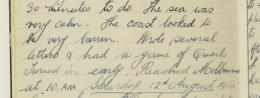 30 minutes to do. The sea was
very calm. The coast looked to
be very barren. Wrote several
letters & had a game of Quoits
Turned in early. Reached Melbourne
at 10. AM Saturday 12th August